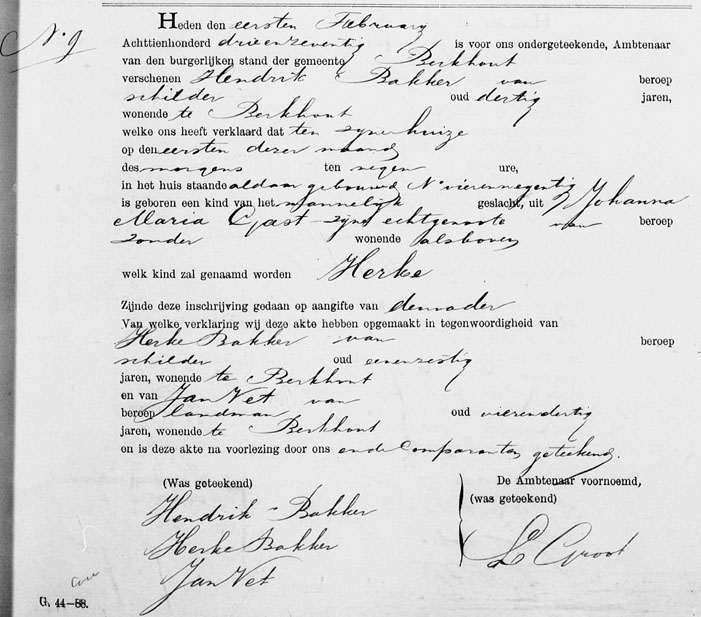 No. 9
Heden den eersten February
Achttienhonderd drieenzeventig is voor ons ondergeteekende, Ambtenaar
van den burgerlijken stand der gemeente Berkhout
verschenen Hendrik Bakker van beroep
schilder oud dertig jaren,
wonende te Berkhout
welke ons heeft verklaard dat ten zynen huize
op den eersten dezer maand
des morgens ten negen ure,
in het huis staande aldaar gebouwd No vierennegentig
is geboren een kind van het mannelijk geslacht, uit Johanna
Maria Gast zyne echtgenoote van beroep
zonder wonende alsboven
welk kind zal genaamd worden Herke
Zijnde deze inschrijving gedaan op aangifte van den vader
Van welke verklaring wij deze akte hebben opgemaakt in tegenwoordigheid van
Herke Bakker van beroep
schilder oud eenenzestig
jaren, wonende te Berkhout
en van Jan Vet van
beroep landman oud vierendertig
jaren, wonende te Berkhout
en is deze akte na voorlezing door ons en de Comparanten geteekend.
(Was geteekend) De Ambtenaar voornoemd,
(was geteekend)
Hendrik Bakker
Herke Bakker
L Groot
Jan Vet
G. 44—88.